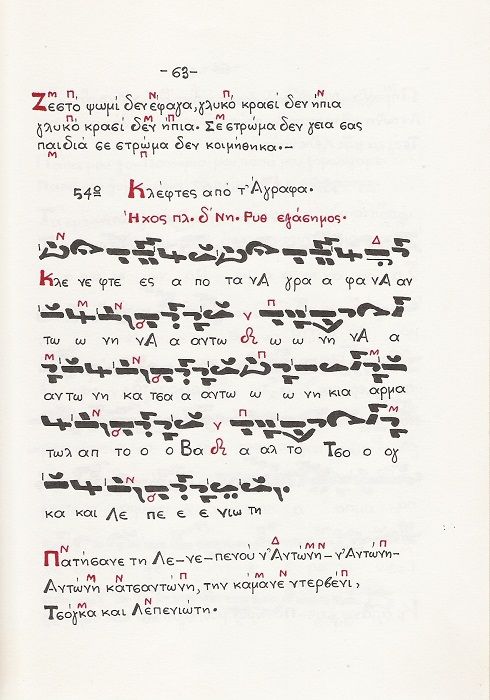 -63-
Ζεστό ψωμί δεν έφαγα, γλυκό κρασί δεν ήπια
γλυκό κρασί δεν ήπια. Σε στρώμα δεν γεια σας
παιδιά σε στρώμα δεν κοιμήθηκα.-
54ο Κλέφτες από τ' Άγραφα.
Ήχος πλ. δ' Νη. Ρυθ εξάσημος.
Κλε νε φτε ες α πο τα νΑ γρα α φα νΑ αν
τω ω νη νΑ α αντω ω ω νη νΑ α
αντω νη κα τσα α αντω ω ω νη κια αρμα
τωλ απ το ο ο Βα α αλ το Τσο ο ογ
κα και Λε πε ε ε νιω τη
Πατήσανε τη Λε-νε-πενού ν'Αντώνη-ν'Αντώνη-
Αντώνη κατσαντώνη, την κάμανε ντερβένι,
Τσόγκα και Λεπενιώτη.